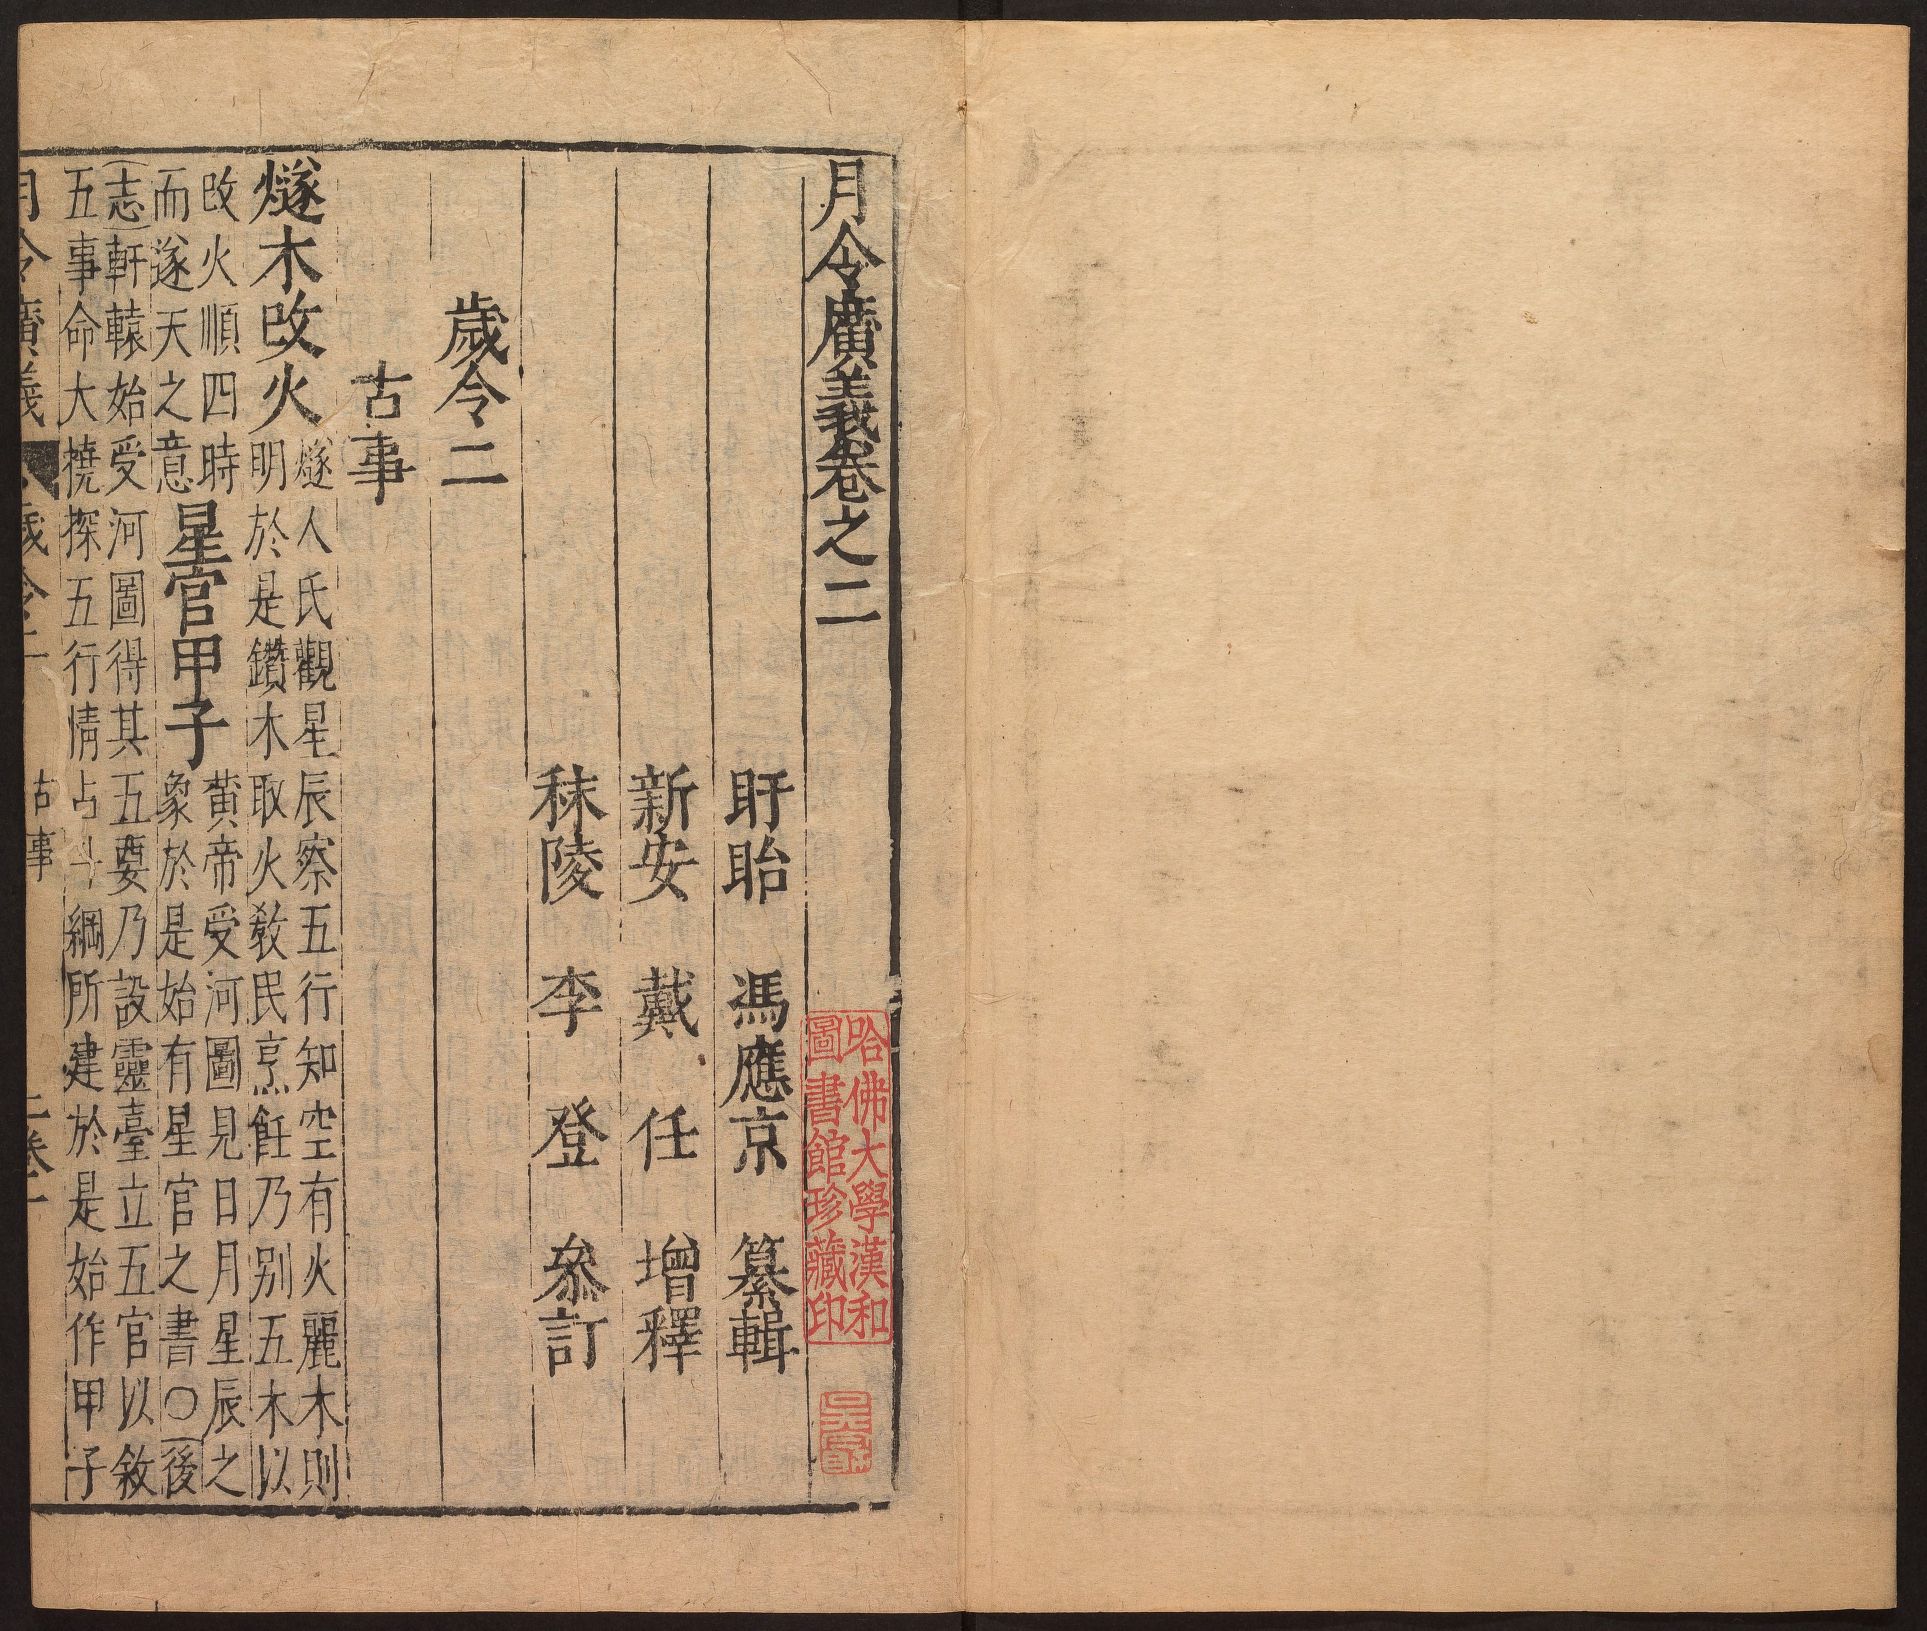 月令廣義卷之二
盱眙　馮應京　纂輯
新安　戴　任　增釋
秣陵　李　登　叅訂
歲令二
古事
燧木改火
燧人氏觀星辰察五行知空有火麗木則
明於是鑽木取火敎民烹飪乃别五木以
改火順四時
而遂天之意
星官甲子
黄帝受河圖見日月星辰之
象於是始有星官之書○(後
志)軒轅始受河圖得其五要乃設靈臺立五官以敘
五事命大撓探五行情占斗綱所建於是始作甲子
月令廣義 歲令二 古事 二卷 一
哈佛大學漢和
圖書館珍藏印